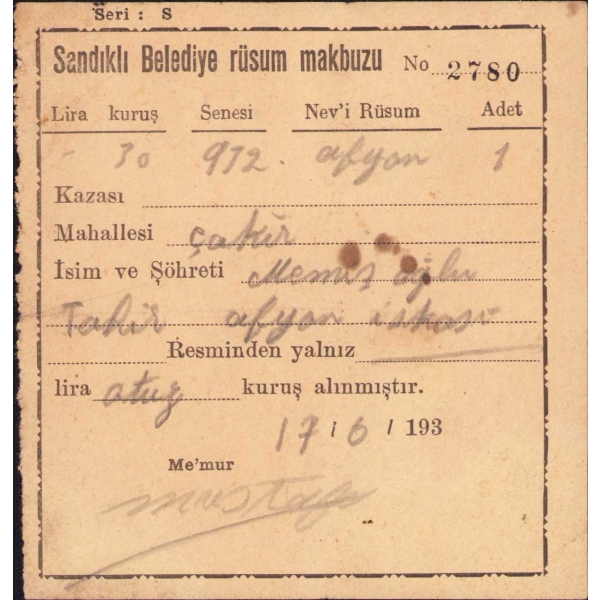 Seri : S
Sandıklı Belediye rüsum makbuzu No 2780
Lira kuruş Senesi Nev'i Rüsum Adet
- 30 932. afyon 1
Kazası
Mahallesi çakır
İsim ve Şöhreti Memiş oğlu
Tahir afyon iskası
Resminden yalnız
lira otuz kuruş alınmıştır.
17 / 6 / 193
Me'mur